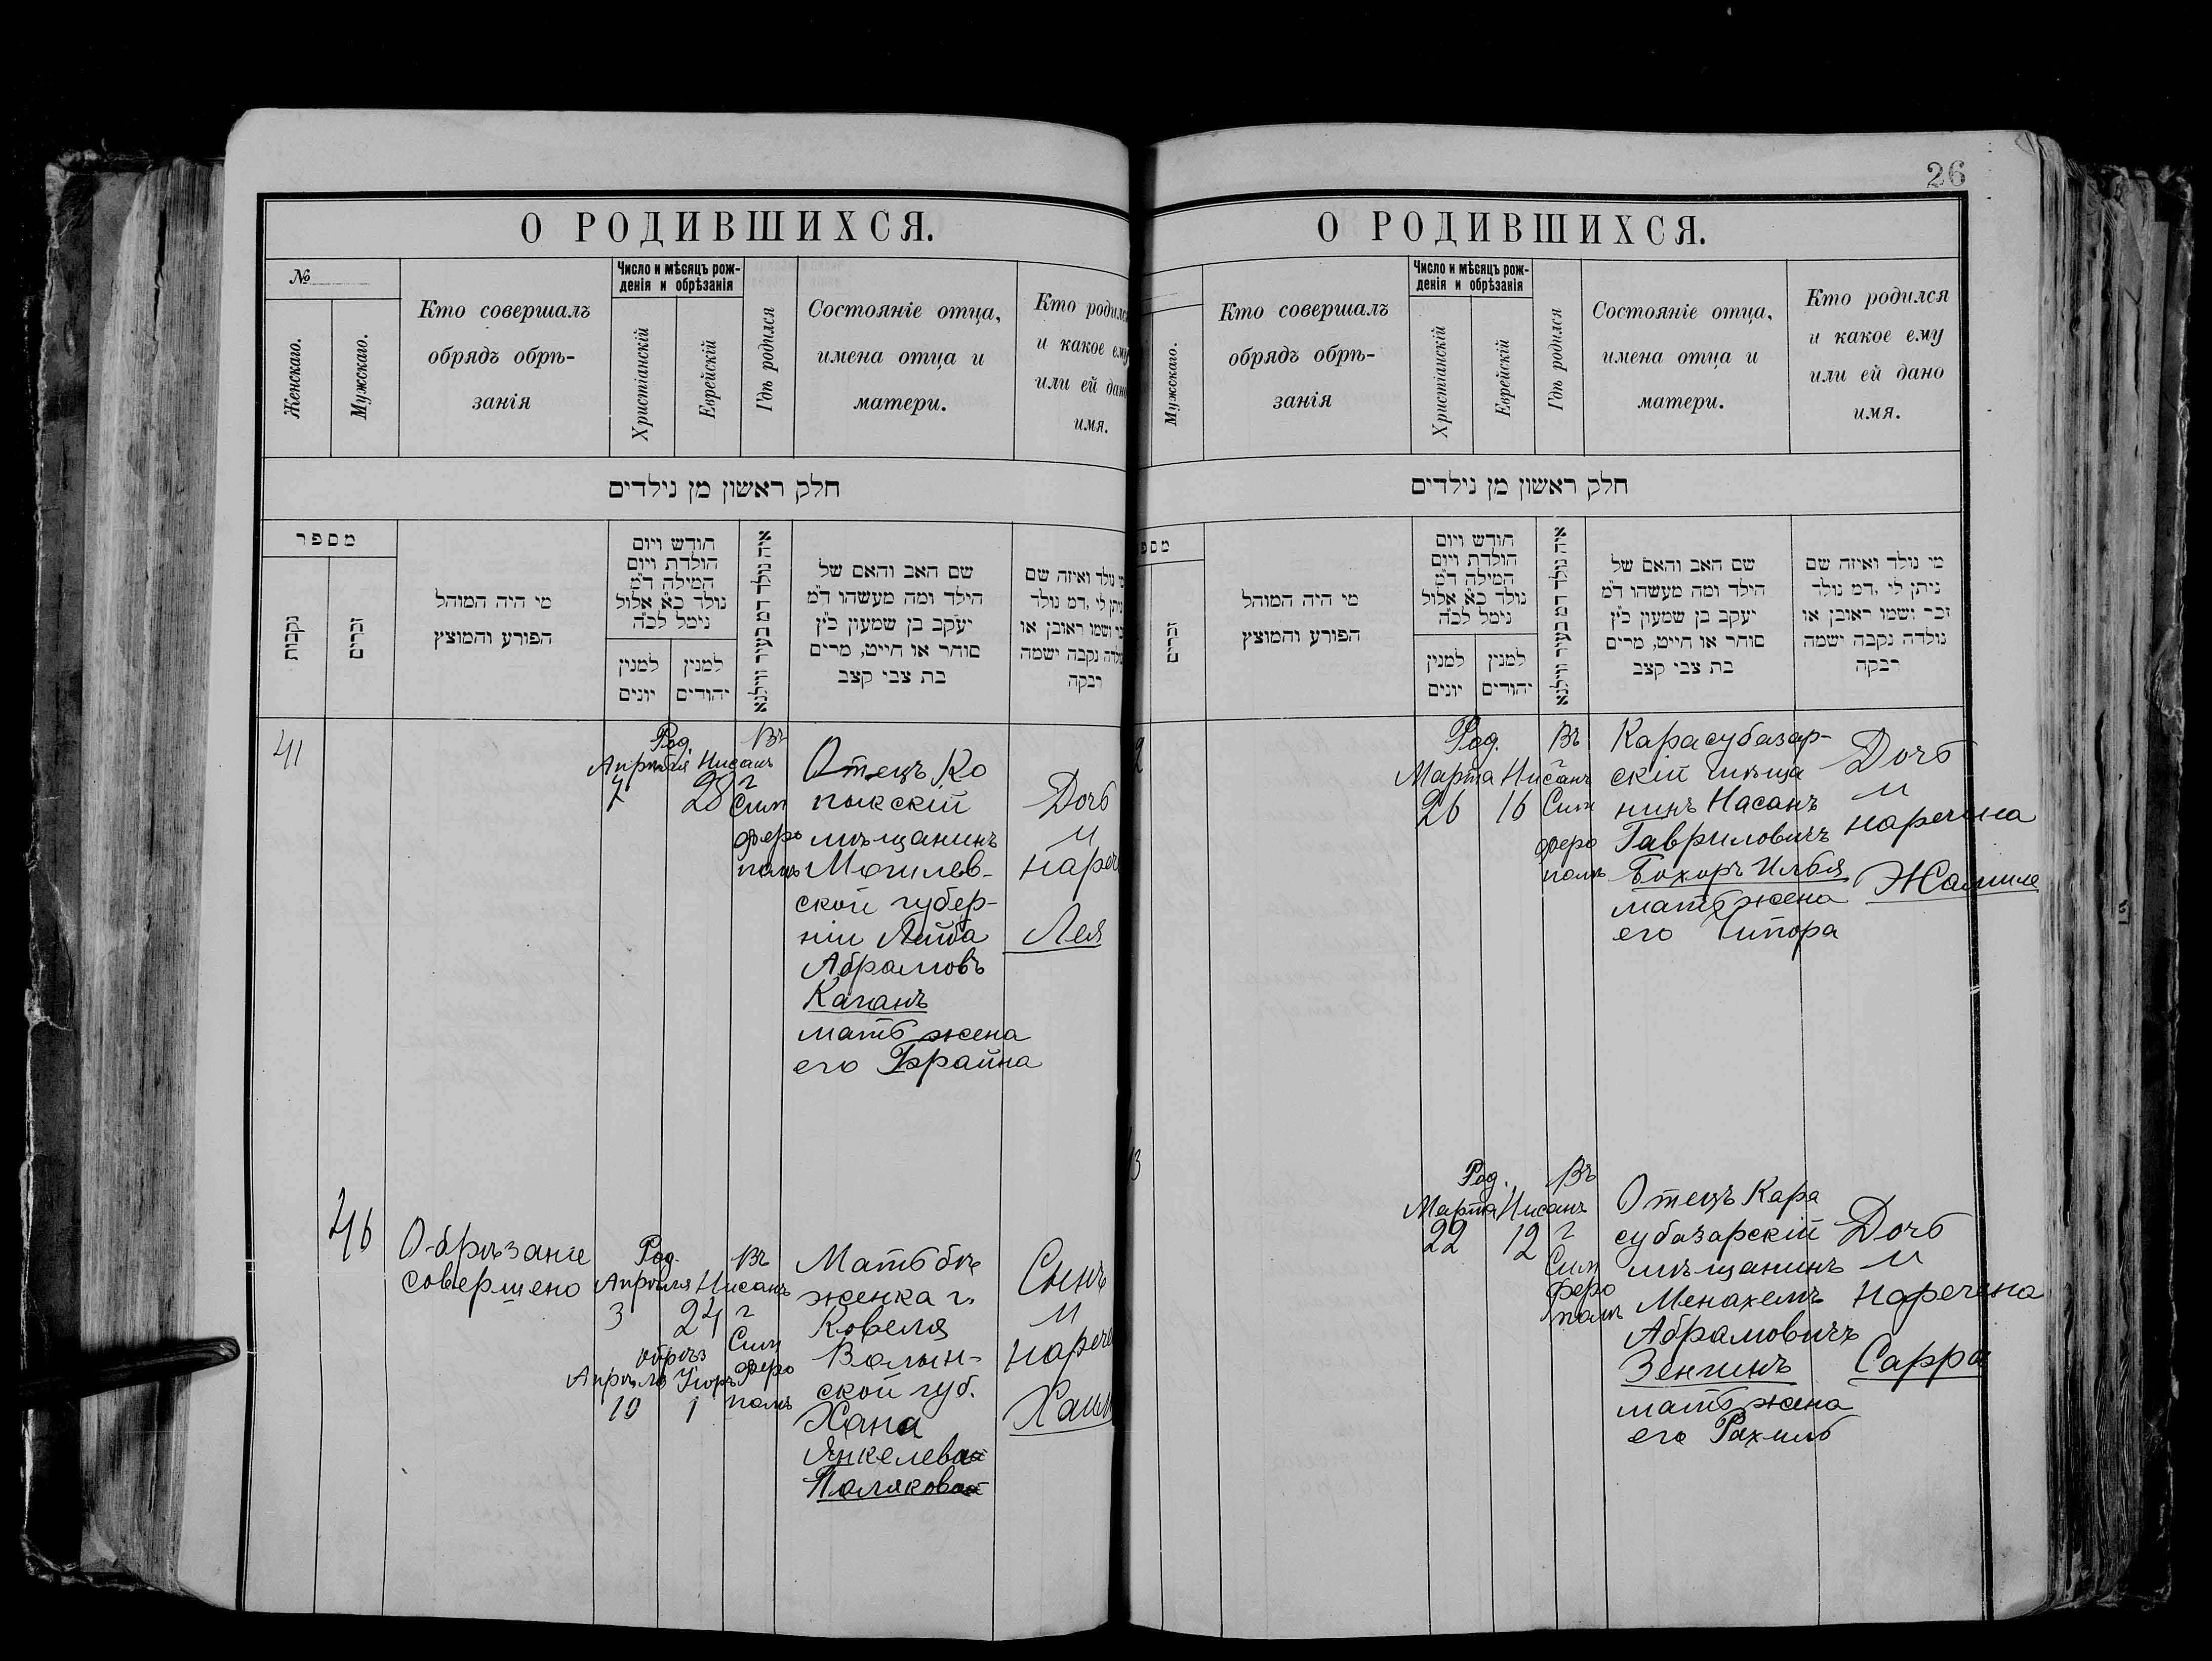 О РОДИВШИХСЯ.
№
Женскаго.
Мужскаго.
Кто совершалъ
обрядъ обрѣ-
занія
Число и мѣсяцъ рож-
денія и обрѣзанія
Христіанскій
Еврейскій
Гдѣ родился
Состояніе отца,
имена отца и
матери.
Кто родилс
и какое ему
или ей дано
имя.
חלק ראשון מן נילדים
מספר
נקבות
זכרים
מי היה המוהל
הפורע והמוצץ
חודש ויום
הולדת ויום
המילה ד״מ
נולד כ״א אלול
נימל לכ״ה
למנין
יונים
למנין
יהודים
איה נולד דמ בעיר ווילנא
שם האב והאם של
הילד ומה מעשהו ד״מ
יעקב בן שמעון כ״ץ
סוחר או חייט, מרים
בת צבי קצב
מי נולד ואיזה שם
ניתן לי ,דמ נולד
זכר ושמו ראובן או
נולדה נקבה ישמה
רבקה
41
Род.
Апрѣля Нисанъ
7 28
Въ
г
Сим
феро
полъ
Отецъ Ко
пыкскій
мѣщанинъ
Могилев-
ской губер-
ніи Лейба
Абрамовъ
Каганъ
мать жена
его Брайна
Дочь
и
нарече
Лея
46
Обрѣзаніе
совершено
Род.
Апрѣля Нисанъ
3 24
обрѣз
Апрѣля Іиоръ
10 1
Въ
г
Сим
феро
полъ
Мать бѣ
женка г.
Ковеля
Волын-
ской губ.
Хана
Янкелевна
Полякова
Сынъ
и
нарече
Хаим
26
О РОДИВШИХСЯ.
Мужскаго.
Кто совершалъ
обрядъ обрѣ-
занія
Число и мѣсяцъ рож-
денія и обрѣзанія
Христіанскій
Еврейскій
Гдѣ родился
Состояніе отца,
имена отца и
матери.
Кто родился
и какое ему
или ей дано
имя.
חלק ראשון מן נילדים
מספ
זכרים
מי היה המוהל
הפורע והמוצץ
חודש ויום
הולדת ויום
המילה ד״מ
נולד כ״א אלול
נימל לכ״ה
למנין
יונים
למנין
יהודים
איה נולד דמ בעיר ווילנא
שם האב והאם של
הילד ומה מעשהו ד״מ
יעקב בן שמעון כ״ץ
סוחר או חייט, מרים
בת צבי קצב
מי נולד ואיזה שם
ניתן לי ,דמ נולד
זכר ושמו ראובן או
נולדה נקבה ישמה
רבקה
2
Род.
Марта Нисанъ
26 16
Въ
г
Сим
феро
полъ
Карасубазар-
скій мѣща
нинъ Насанъ
Гавриловичъ
Бохоръ Илья
мать жена
его Ципора
Дочь
и
наречена
Жамиле
3
Род.
Марта Нисанъ
22 12
Въ
г
Сим
феро
полъ
Отецъ Кара
субазарскій
мѣщанинъ
Менахемъ
Абрамовичъ
Зенгинъ
мать жена
его Рахиль
Дочь
и
наречена
Сарра